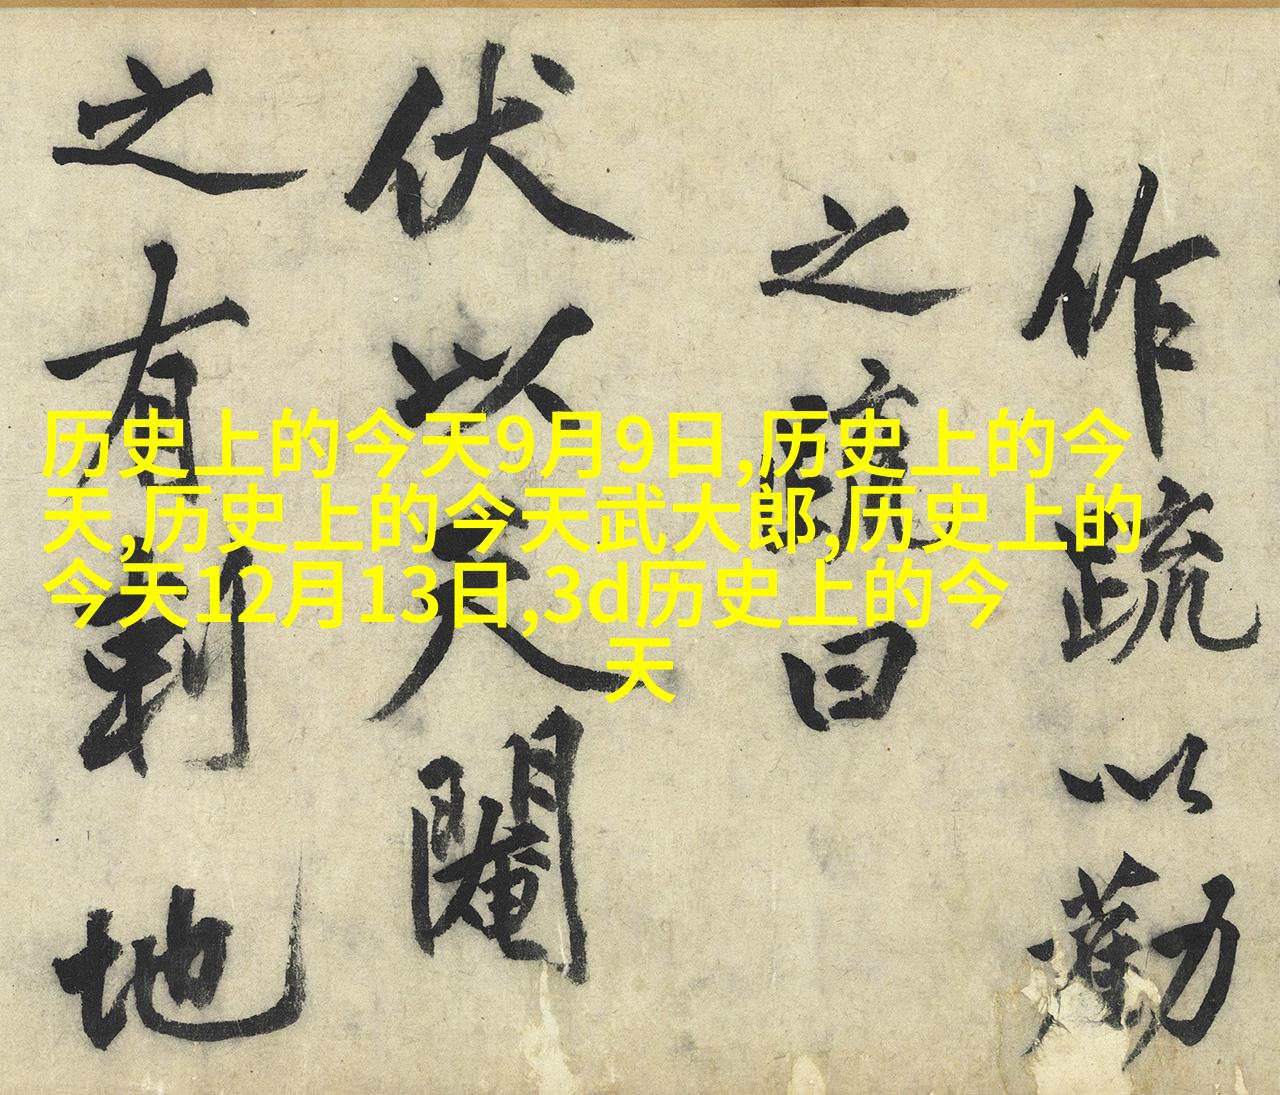 作疏以勸
之曰
伏以天閹
之有地
历史上的今天9月9日,历史上的今
天,历史上的今天武大郎,历史上的
今天12月13日,3d历史上的今
天